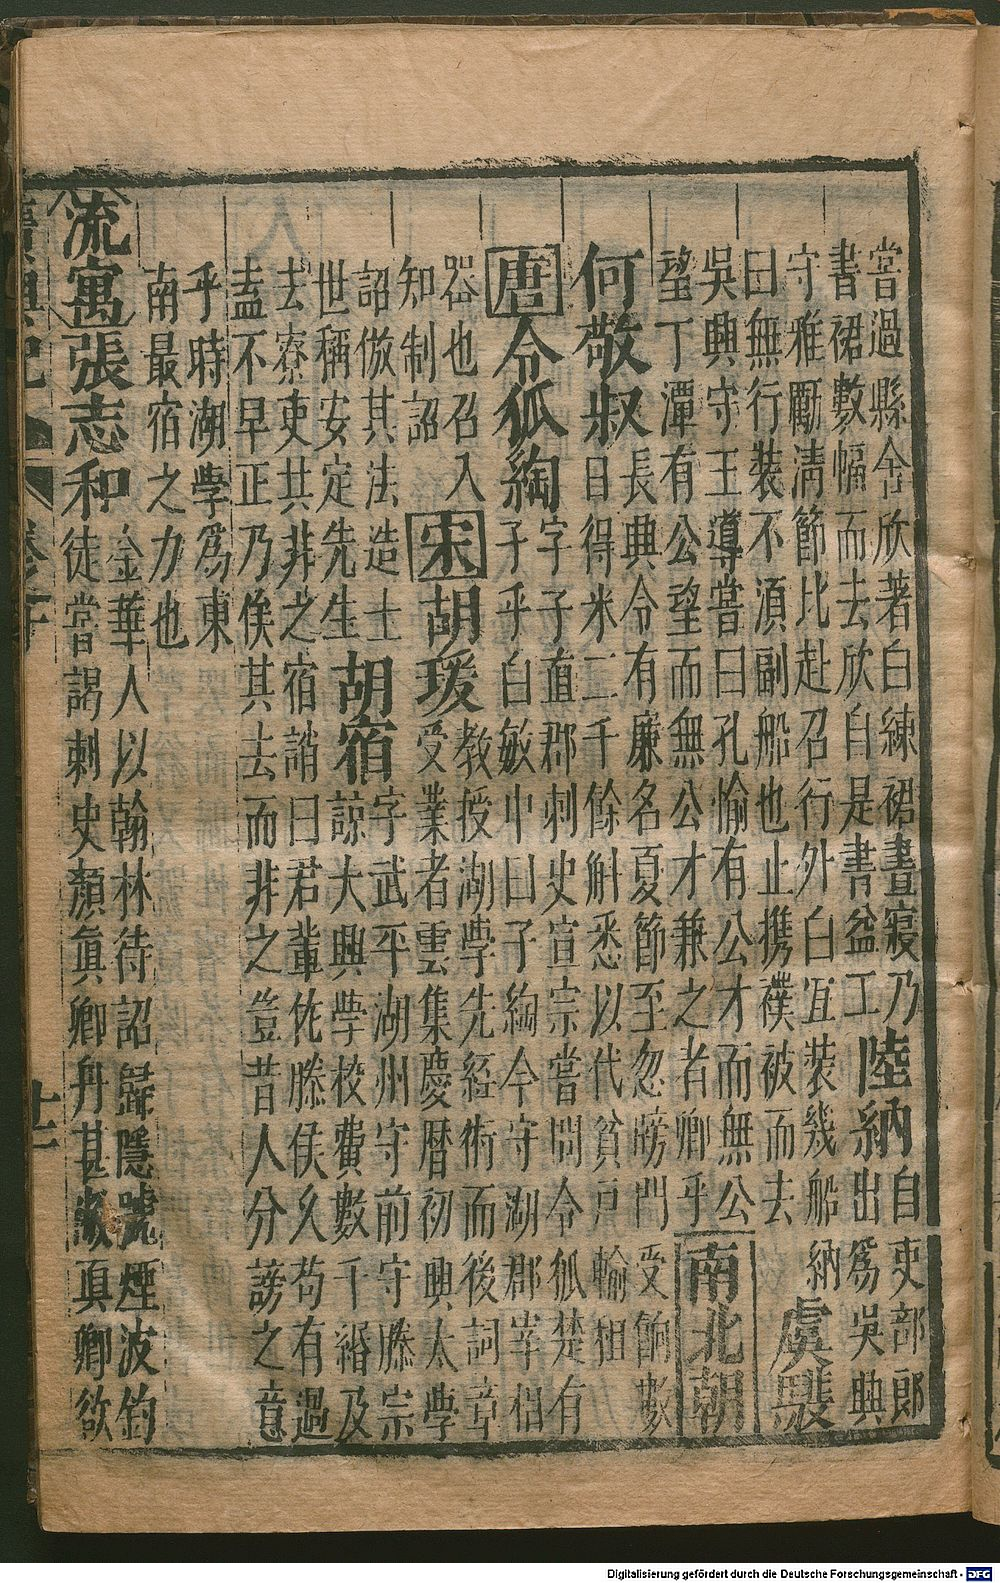 嘗過縣舍欣著白練裙晝寢乃
書裙數幅而去欣自是書益工
陸納
自吏部郎
出爲吳興
守雅勵清節比赴召行外白宜裝幾船納
曰無行裝不須副船也止携襆被而去
虞
吳興守王導嘗曰孔愉有公才而無公
望丁潭有公望而無公才兼之者卿乎
南北朝
何敬叔
長興令有廉名夏節至忽牓門受餉數
日得米二千餘斛悉以代貧戶輸租
唐
令狐綯
字子直郡刺史宣宗嘗問令狐楚有
子乎白敏中曰子綯今守湖郡宰相
器也召入
知制誥
宋
胡瑗
教授湖學先經術而後詞章
受業者雲集慶曆初興太學
詔倣其法造士
世稱安定先生
胡宿
字武平湖州守前守滕宗
諒大興學校費數千緡及
去寮吏共非之宿誚曰君輩佐滕侯久苟有過
盍不早正乃俟其去而非之豈昔人分謗之意
乎時湖學爲東
南最宿之力也
流寓
張志和
金華人以翰林待詔歸隱號煙波釣
徒嘗謁刺史顏眞卿舟甚敝眞卿欲
廣輿記
卷之十
十二
Digitalisierung gefördert durch die Deutsche Forschungsgemeinschaft - DFG